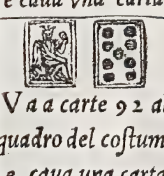 e caua vna carta
V a a carte 92 al
quadro del coſtum
e caua una carte